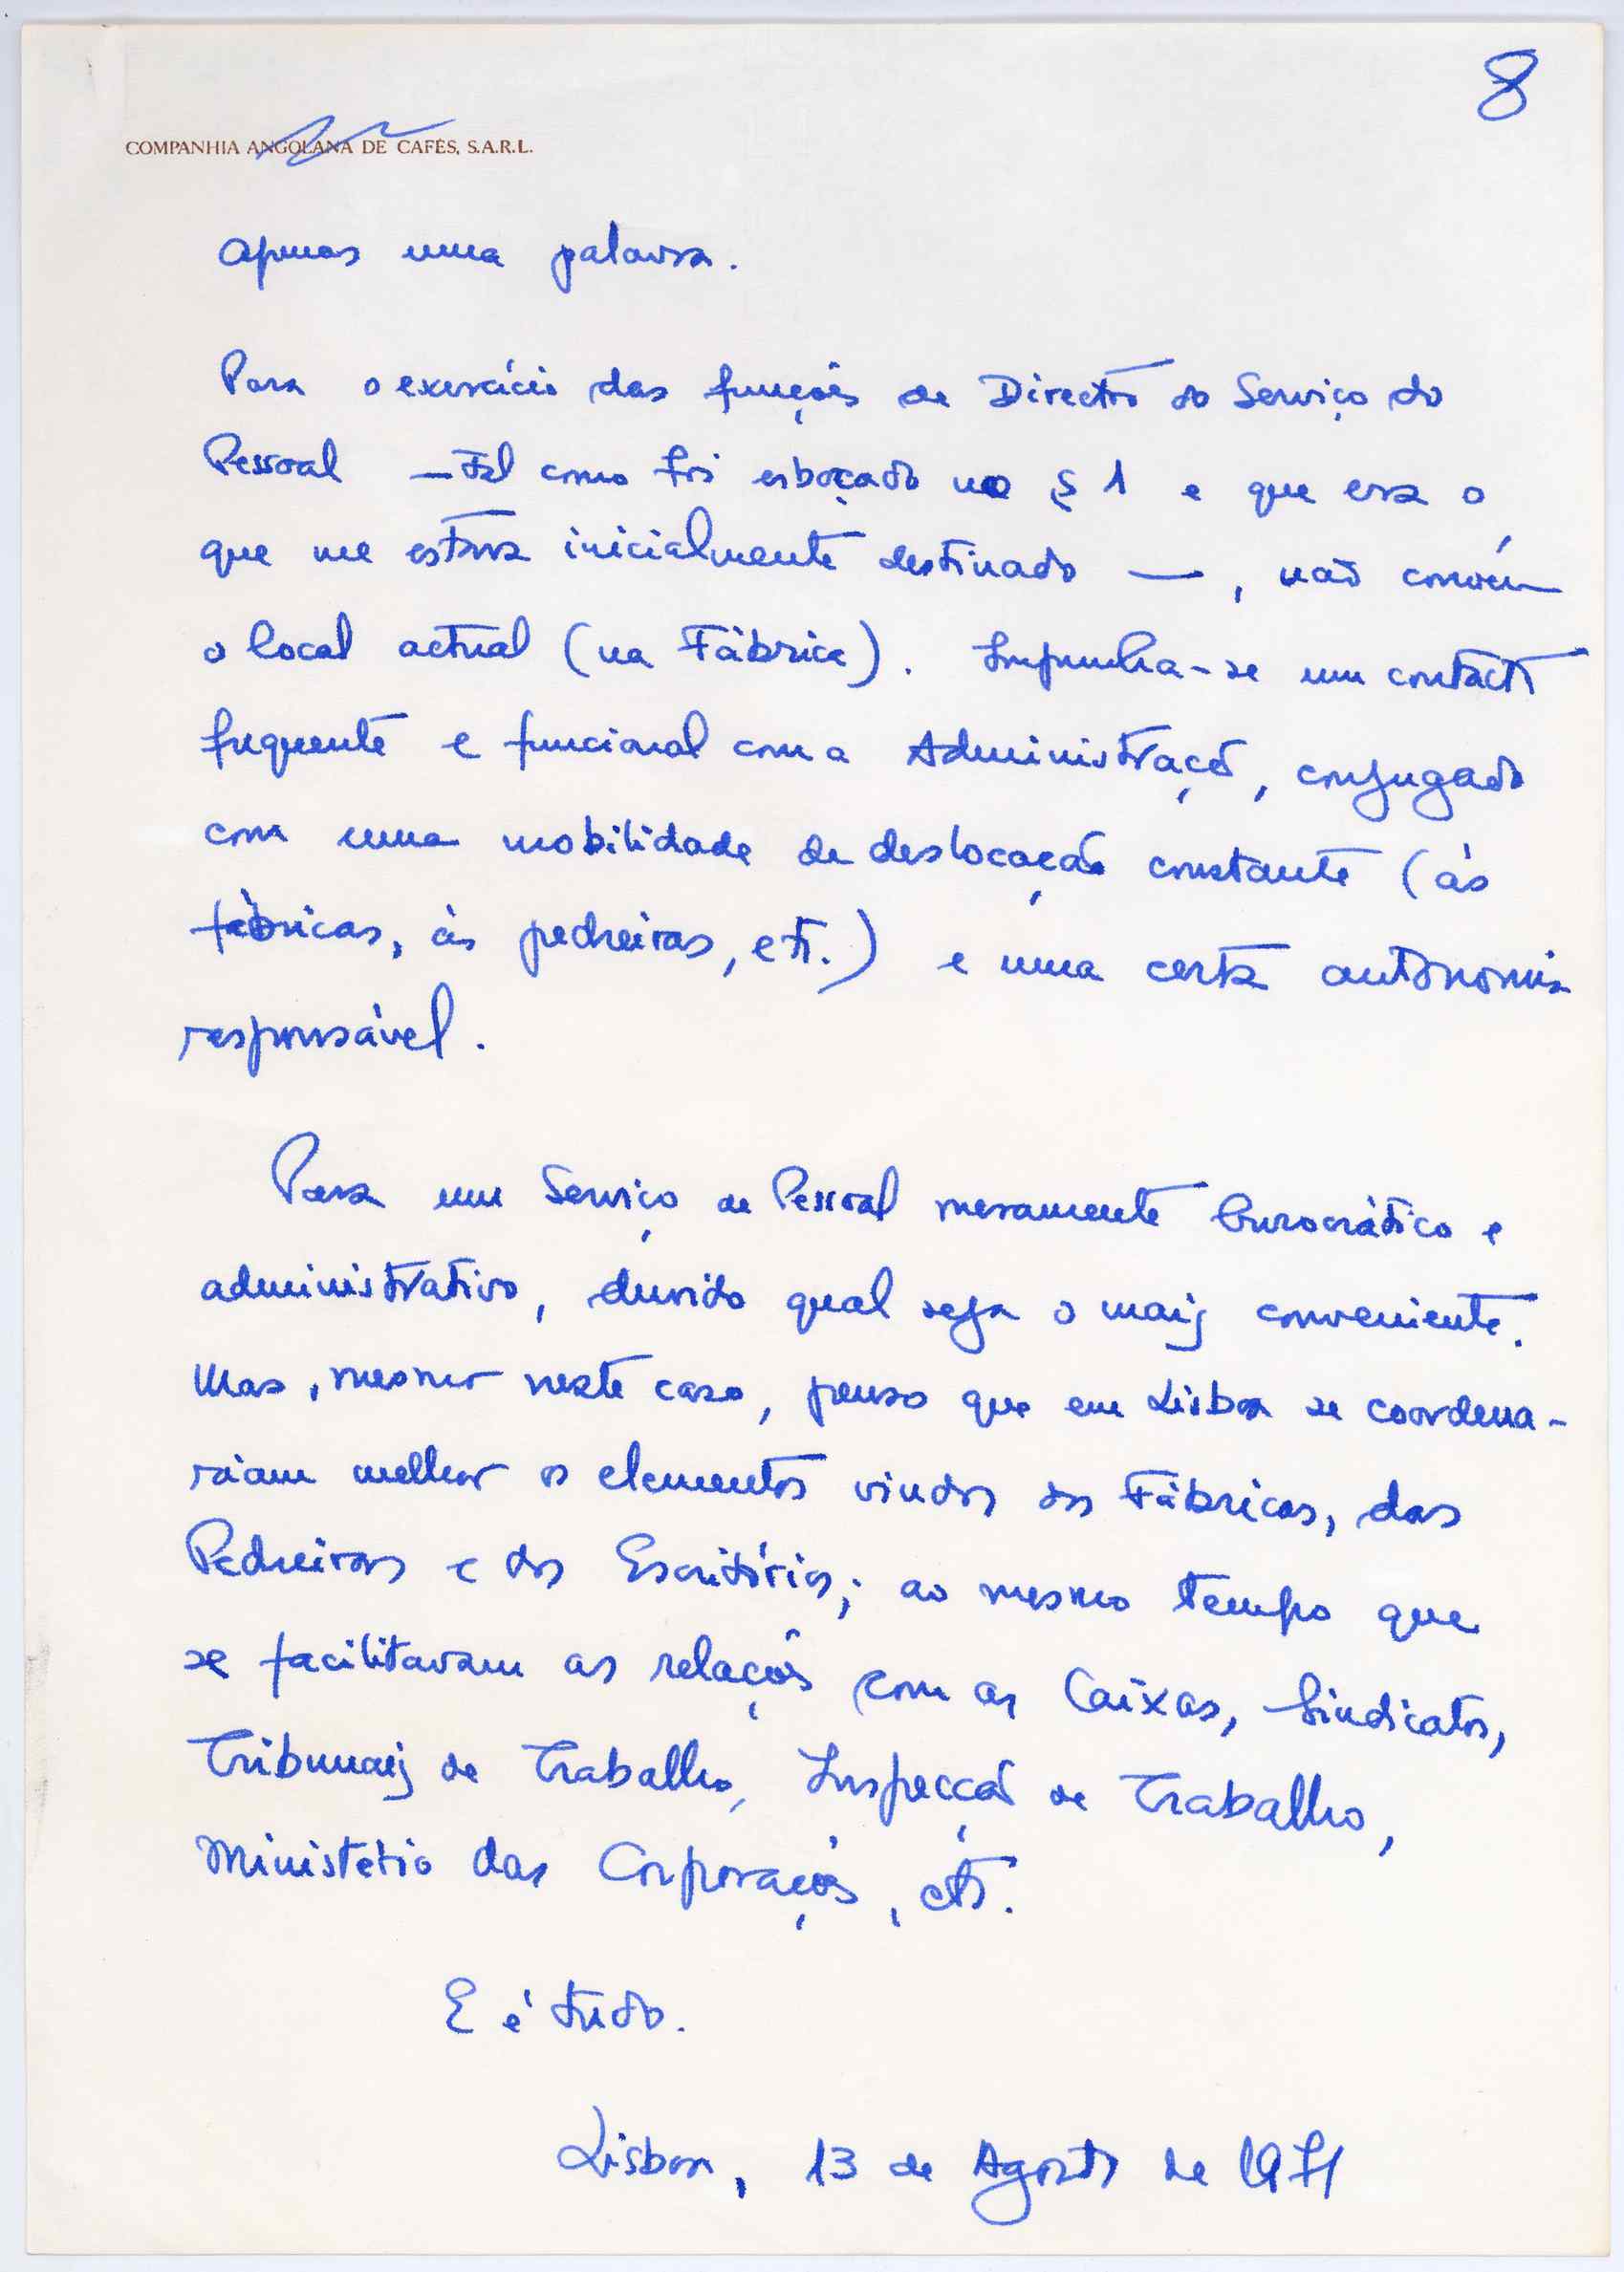 8
COMPANHIA ANGOLANA DE CAFÉS, S.A.R.L.
Apenas uma palavra.
Para o exercício das funções de Director do Serviço do
Pessoal — tal como foi esboçado no § 1 e que era o
que me estava inicialmente destinado —, não convém
o local actual (na Fábrica). Impunha-se um contacto
frequente e funcional com a Administração, conjugado
com uma mobilidade de deslocação constante (às
fábricas, às pedreiras, etc.) e uma certa autonomia
responsável.
Para um Serviço de Pessoal meramente burocrático e
administrativo, duvido qual seja o mais conveniente.
Mas, mesmo neste caso, penso que em Lisboa se coordena-
riam melhor os elementos vindos das Fábricas, das
Pedreiras e dos Escritórios; ao mesmo tempo que
se facilitavam as relações com as Caixas, Sindicatos,
Tribunais de Trabalho, Inspecção de Trabalho,
Ministério das Corporações, etc.
E é tudo.
Lisboa, 13 de Agosto de 1971